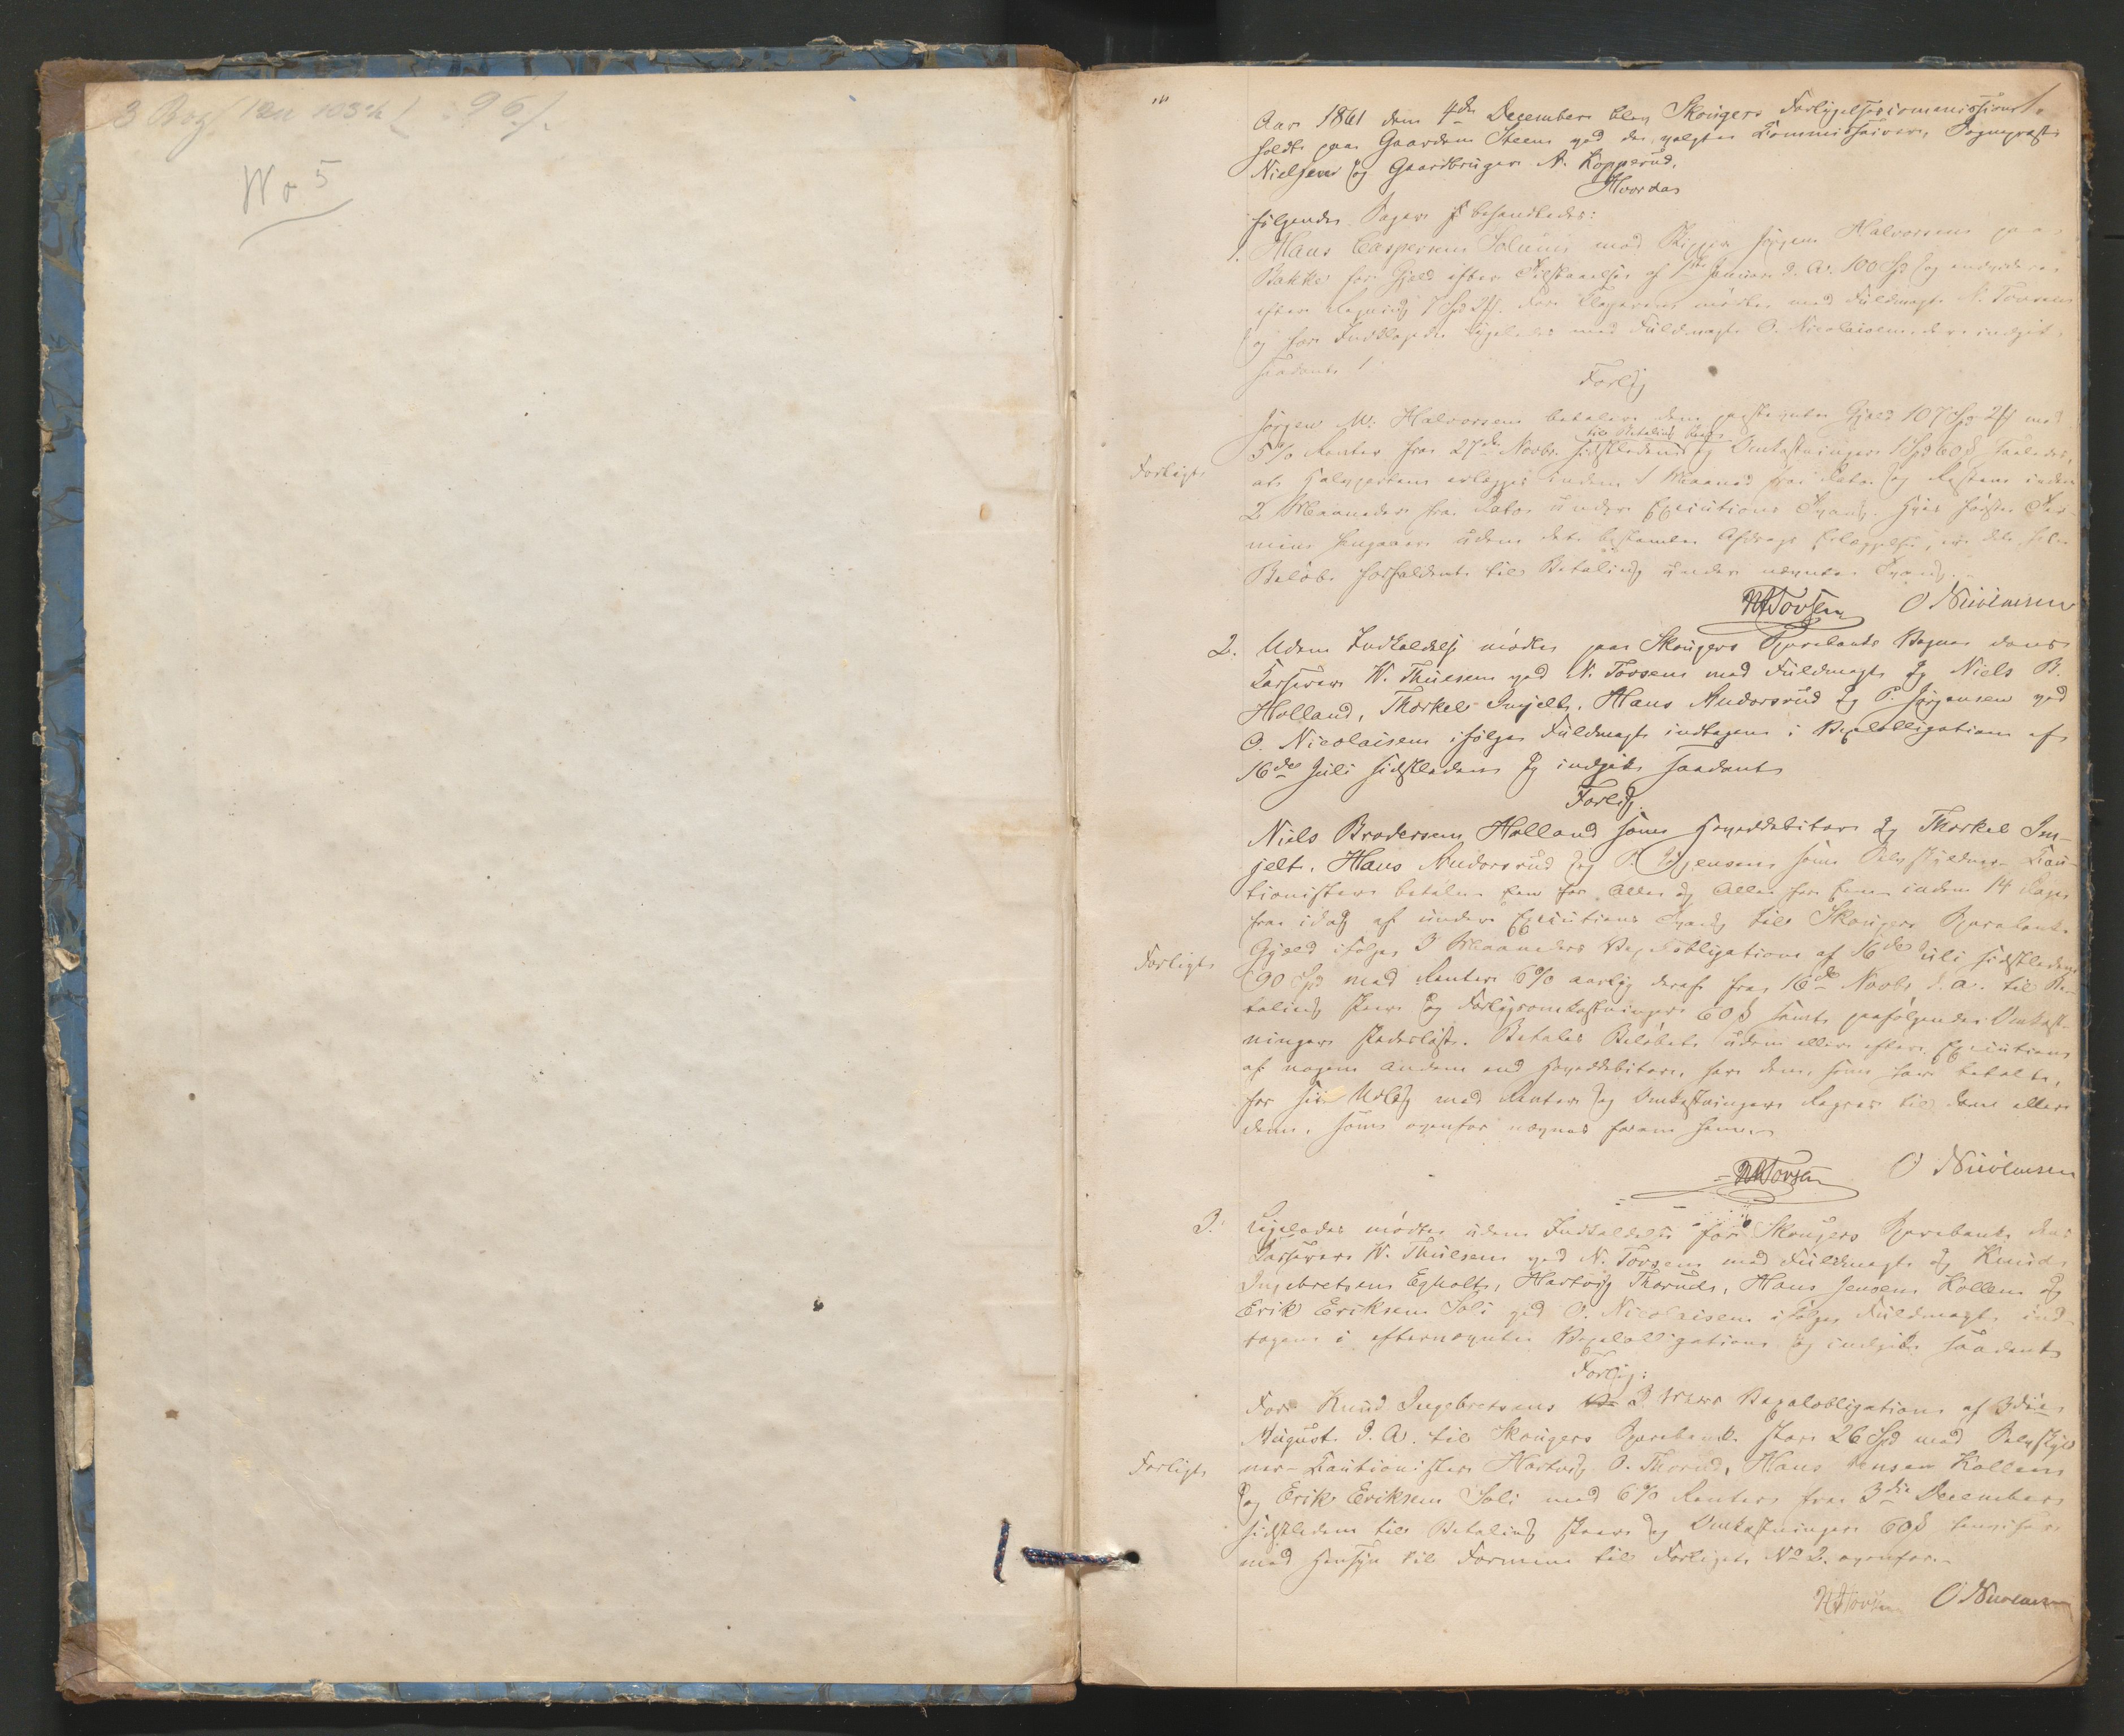 3 Bog
96
No 5
1.
Aar 1861 den 4de December blev Skougers Forligelsescommission
holdt paa Gaarden Steen ved de valgte Kommissairer, Sognepræst
Nielsen og Gaardbruger A. Kopperud.
Hvorda
følgende Sager behandledes:
1. Hans Caspersen Solum mod Skipper Jørgen Halvorsen paa
Bakke for Gjeld efter Tilstaaelse af 1ste Januar d. A. 100 Spd og endvidere
efter Regning 7 Spd 2 . For Klageren mødte med Fuldmagt N. Tovsen
og for Indklagede ligeledes med Fuldmagt O. Nicolaisen der indgik
saadant
Forlig
Jørgen M. Halvorsen betaler den paastævnte Gjæld 107 Spd 2 med
til Betaling skeer
5% Renter fra 27de Novbr. sidstleden og Omkostninger 1 Spd 60 ß saaledes,
Forligt
at Halvparten erlægges inden 1 Maaned fra Dato og Resten inden
2 Maaneder fra Dato under Executions Tvang. Hvis første Ter-
min hengaaer uden det bestemte Afdrags Erlæggelse, er det hele
Beløb forfaldent til Betaling under nævnte Tvang.
N Tovsen O Nicolaisen
2. Uden Indkaldelse mødte paa Skougers Sparebanks Vegne dens
Kasserer W. Thuesen ved N. Tovsen med Fuldmagt og Niels B.
Holland, Thorkel Imjelt, Hans Andorsrud og P. Jørgensen ved
O. Nicolaisen ifølge Fuldmagt indtagen i Vexelobligation af
16de Juli sidstleden og indgik saadant
Forlig.
Niels Brodersen Holland som Hoveddebitor og Thorkel Im-
jelt, Hans Andorsrud og P. Jørgensen som Selvskyldner-Kau-
tionister betaler En for Alle og Alle for Een inden 14 Dage
fra idag af under Executions Tvang til Skougers Sparebank
Gjæld ifølge 3 Maaneders Vexelobligation af 16de Juli sidstleden
Forligt
90 Spd med Renter 6% aarlig deraf fra 16de Novbr d. a. til Be-
taling skeer og Forligsomkostninger 60 ß samt paafølgende Omkost-
ninger skadesløst. Betales Beløbet uden eller efter Execution
af nogen anden end Hoveddebitor, har den, som har betalt,
for sit Udlæg med Renter og Omkostninger Regres til den eller
dem, som ovenfor nævnes foran ham.
N Tovsen O Nicolaisen
3. Ligeledes mødte uden Indkaldelse for Skougers Sparebank dens
Kasserer W. Thuesen ved N. Tovsen med Fuldmagt og Knud
Ingebretsen Egholt, Hartvig Thorud, Hans Jensen Kollen og
Erik Eriksen Soli ved O. Nicolaisen ifølge Fuldmagt ind-
tagen i efternævnte Vexelobligation og indgik saadant
Forlig:
For Knud Ingebretsens 3 Vexelobligation af 3die
August d. A. til Skougers Sparebank stor 26 Spd med Selvskyld
Forligt
ner-Kautionister Hartvig O. Thorud, Hans Jensen Kollen
og Erik Eriksen Soli med 6% Renter fra 3die December
sidstleden til Betaling skeer og Omkostninger 60 ß henvises
med Hensyn til Formen til Forliget No 2. ovenfor.
N Tovsen O Nicolaisen